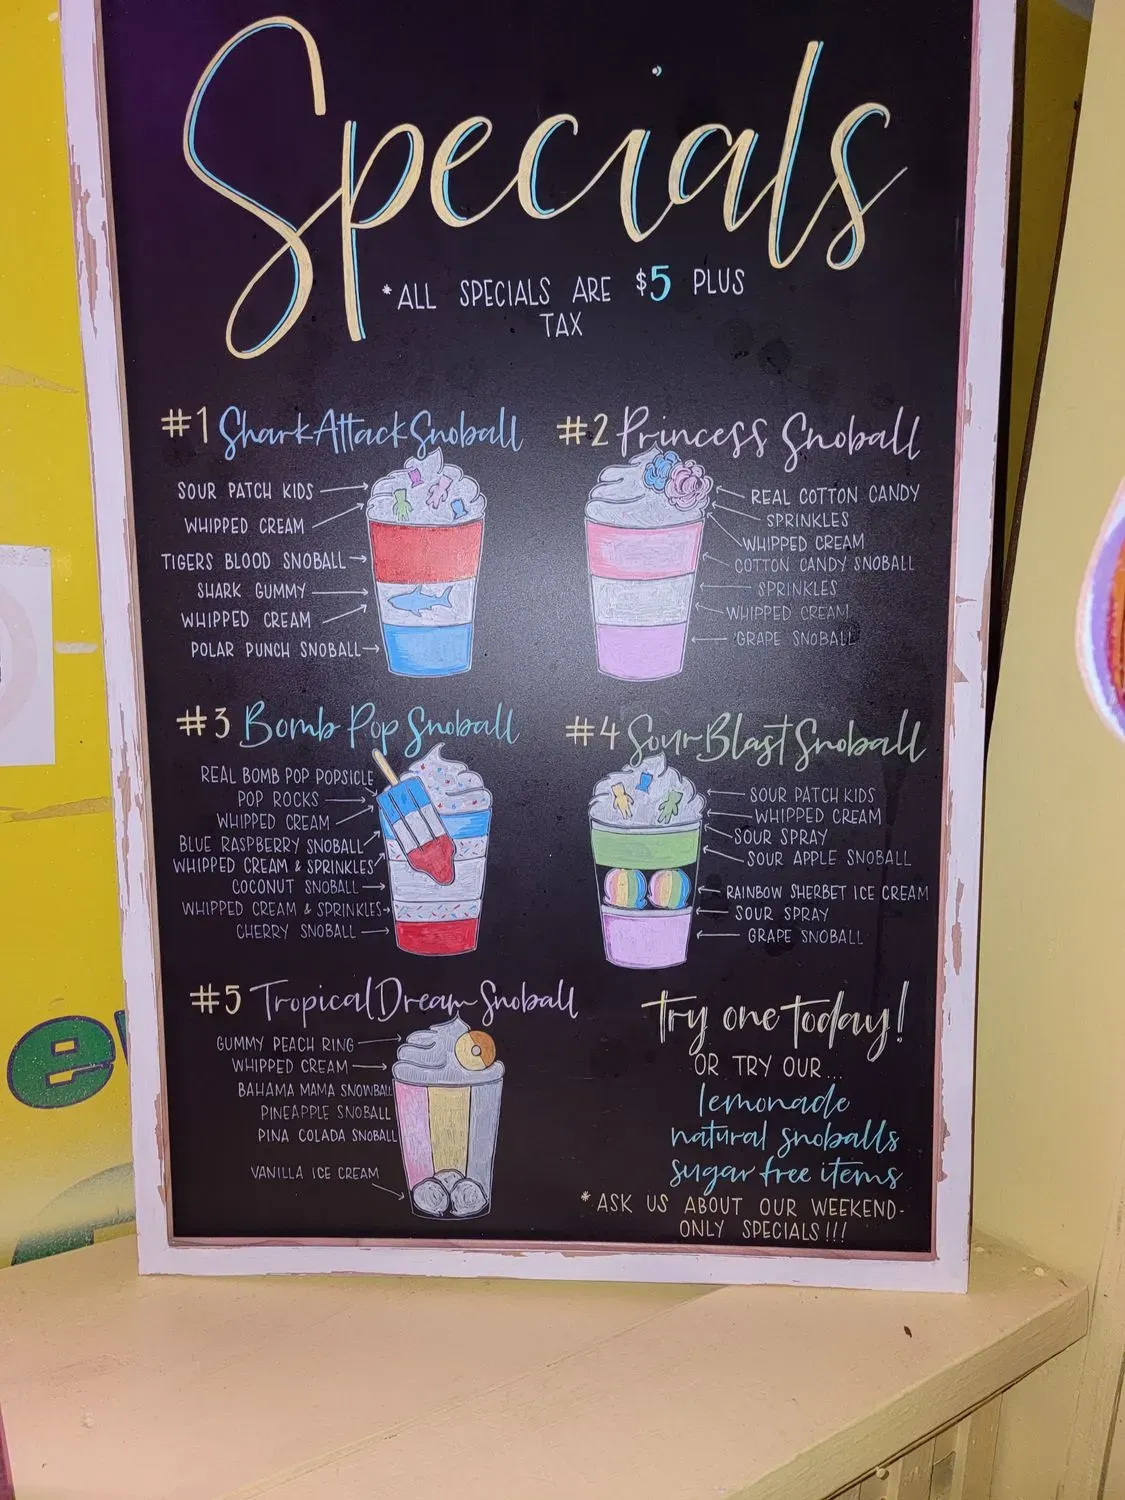 Specials
*ALL SPECIALS ARE $5 PLUS
TAX
#1 Shark Attack Snoball
SOUR PATCH KIDS
WHIPPED CREAM
TIGERS BLOOD SNOBALL
SHARK GUMMY
WHIPPED CREAM
POLAR PUNCH SNOBALL
#2 Princess Snoball
REAL COTTON CANDY
SPRINKLES
WHIPPED CREAM
COTTON CANDY SNOBALL
SPRINKLES
WHIPPED CREAM
GRAPE SNOBALL
#3 Bomb Pop Snoball
REAL BOMB POP POPSICLE
POP ROCKS
WHIPPED CREAM
BLUE RASPBERRY SNOBALL
WHIPPED CREAM & SPRINKLES
COCONUT SNOBALL
WHIPPED CREAM & SPRINKLES
CHERRY SNOBALL
#4 Sour Blast Snoball
SOUR PATCH KIDS
WHIPPED CREAM
SOUR SPRAY
SOUR APPLE SNOBALL
RAINBOW SHERBET ICE CREAM
SOUR SPRAY
GRAPE SNOBALL
#5 Tropical Dream Snoball
GUMMY PEACH RING
WHIPPED CREAM
BAHAMA MAMA SNOWBALL
PINEAPPLE SNOBALL
PINA COLADA SNOBALL
VANILLA ICE CREAM
try one today!
OR TRY OUR...
lemonade
natural snoballs
sugar free items
*ASK US ABOUT OUR WEEKEND-
ONLY SPECIALS!!!